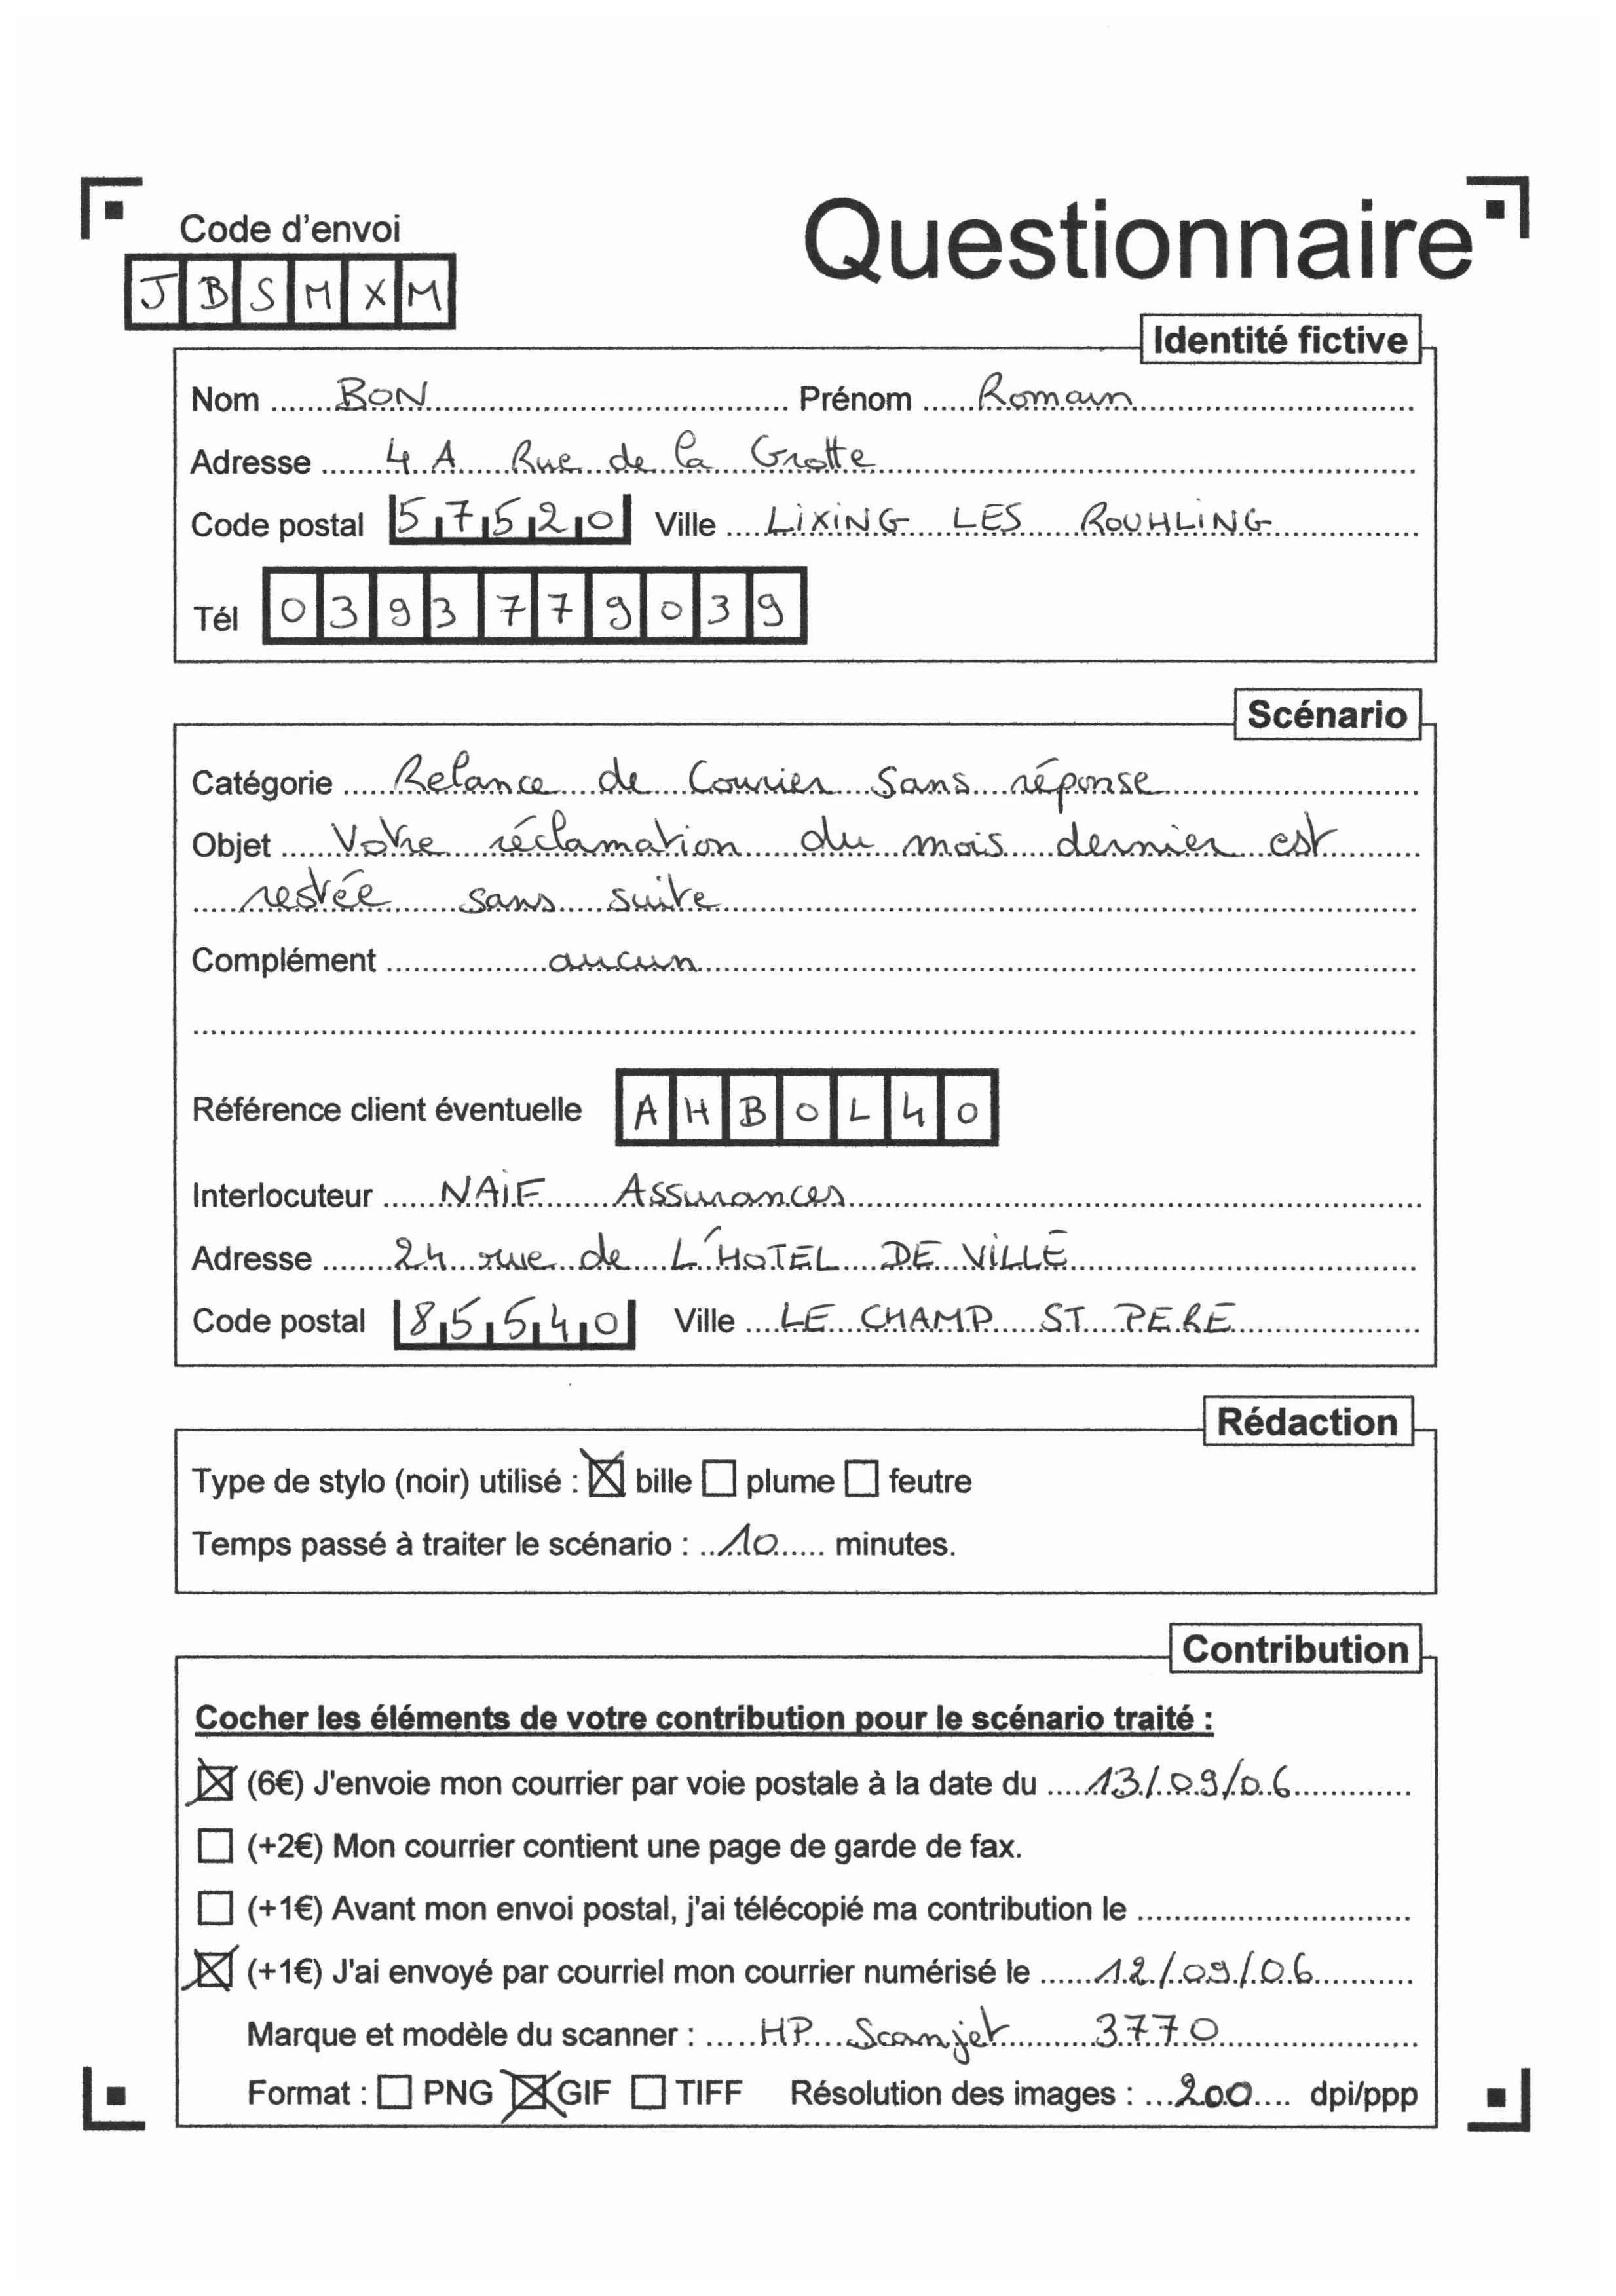 Code d'envoi
Questionnaire
JBSMXM
Identité fictive
Nom BON Prénom Romain
Adresse 4 A Rue de la Grotte
Code postal 57520 Ville LiXiNG LES ROUHLiNG
Tél 0393779039
Scénario
Catégorie Relance de Courier sans réponse
Objet Votre réclamation du mois dernier est
restée sans suite
Complément aucun
Référence client éventuelle AHBOL40
Interlocuteur NAiF Assurances
Adresse 24 rue de L'HOTEL DE ViLLE
Code postal 85540 Ville LE CHAMP ST PERE
Rédaction
Type de stylo (noir) utilisé : ☒ bille ☐ plume ☐ feutre
Temps passé à traiter le scénario : 10 minutes.
Contribution
Cocher les éléments de votre contribution pour le scénario traité :
☒ (6€) J'envoie mon courrier par voie postale à la date du 13/09/06
☐ (+2€) Mon courrier contient une page de garde de fax.
☐ (+1€) Avant mon envoi postal, j'ai télécopié ma contribution le
☒ (+1€) J'ai envoyé par courriel mon courrier numérisé le 12/09/06
Marque et modèle du scanner : HP Scanjet 3770
Format : ☐ PNG ☒ GIF ☐ TIFF Résolution des images : 200 dpi/ppp